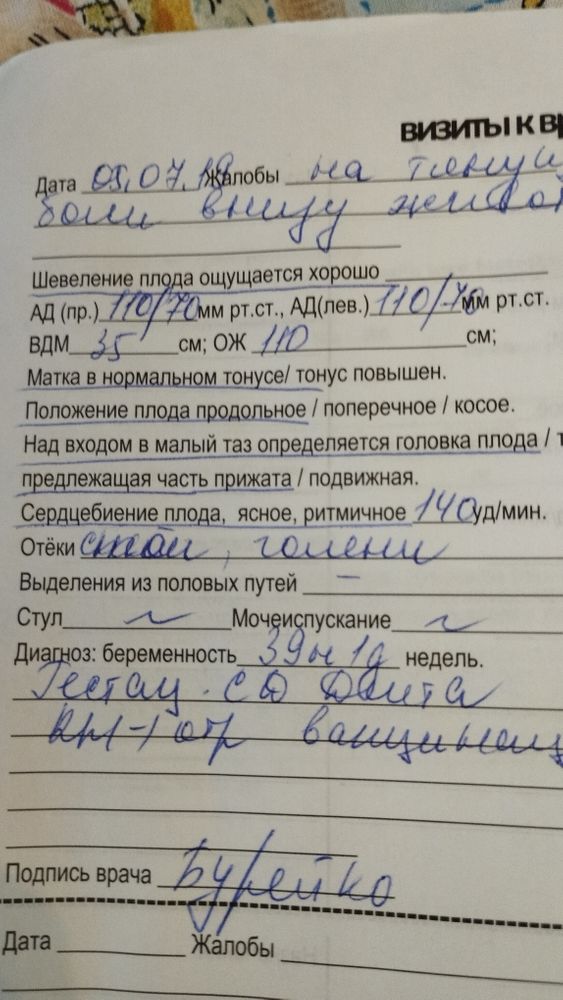 ВИЗИТЫ К ВР
Дата 05.07.19 Жалобы на тянущ
боли внизу живот
Шевеление плода ощущается хорошо
АД (пр.) 110/70 мм рт.ст., АД(лев.) 110/70 мм рт.ст.
ВДМ 35 см; ОЖ 110 см;
Матка в нормальном тонусе/ тонус повышен.
Положение плода продольное / поперечное / косое.
Над входом в малый таз определяется головка плода / т
предлежащая часть прижата / подвижная.
Сердцебиение плода, ясное, ритмичное 140 уд/мин.
Отёки стоп, голени
Выделения из половых путей –
Стул N Мочеиспускание N
Диагноз: беременность 39н 1д недель.
Гестац. СД Диета
Rh(-) отр вакцинац
Подпись врача Бурейко
Дата Жалобы